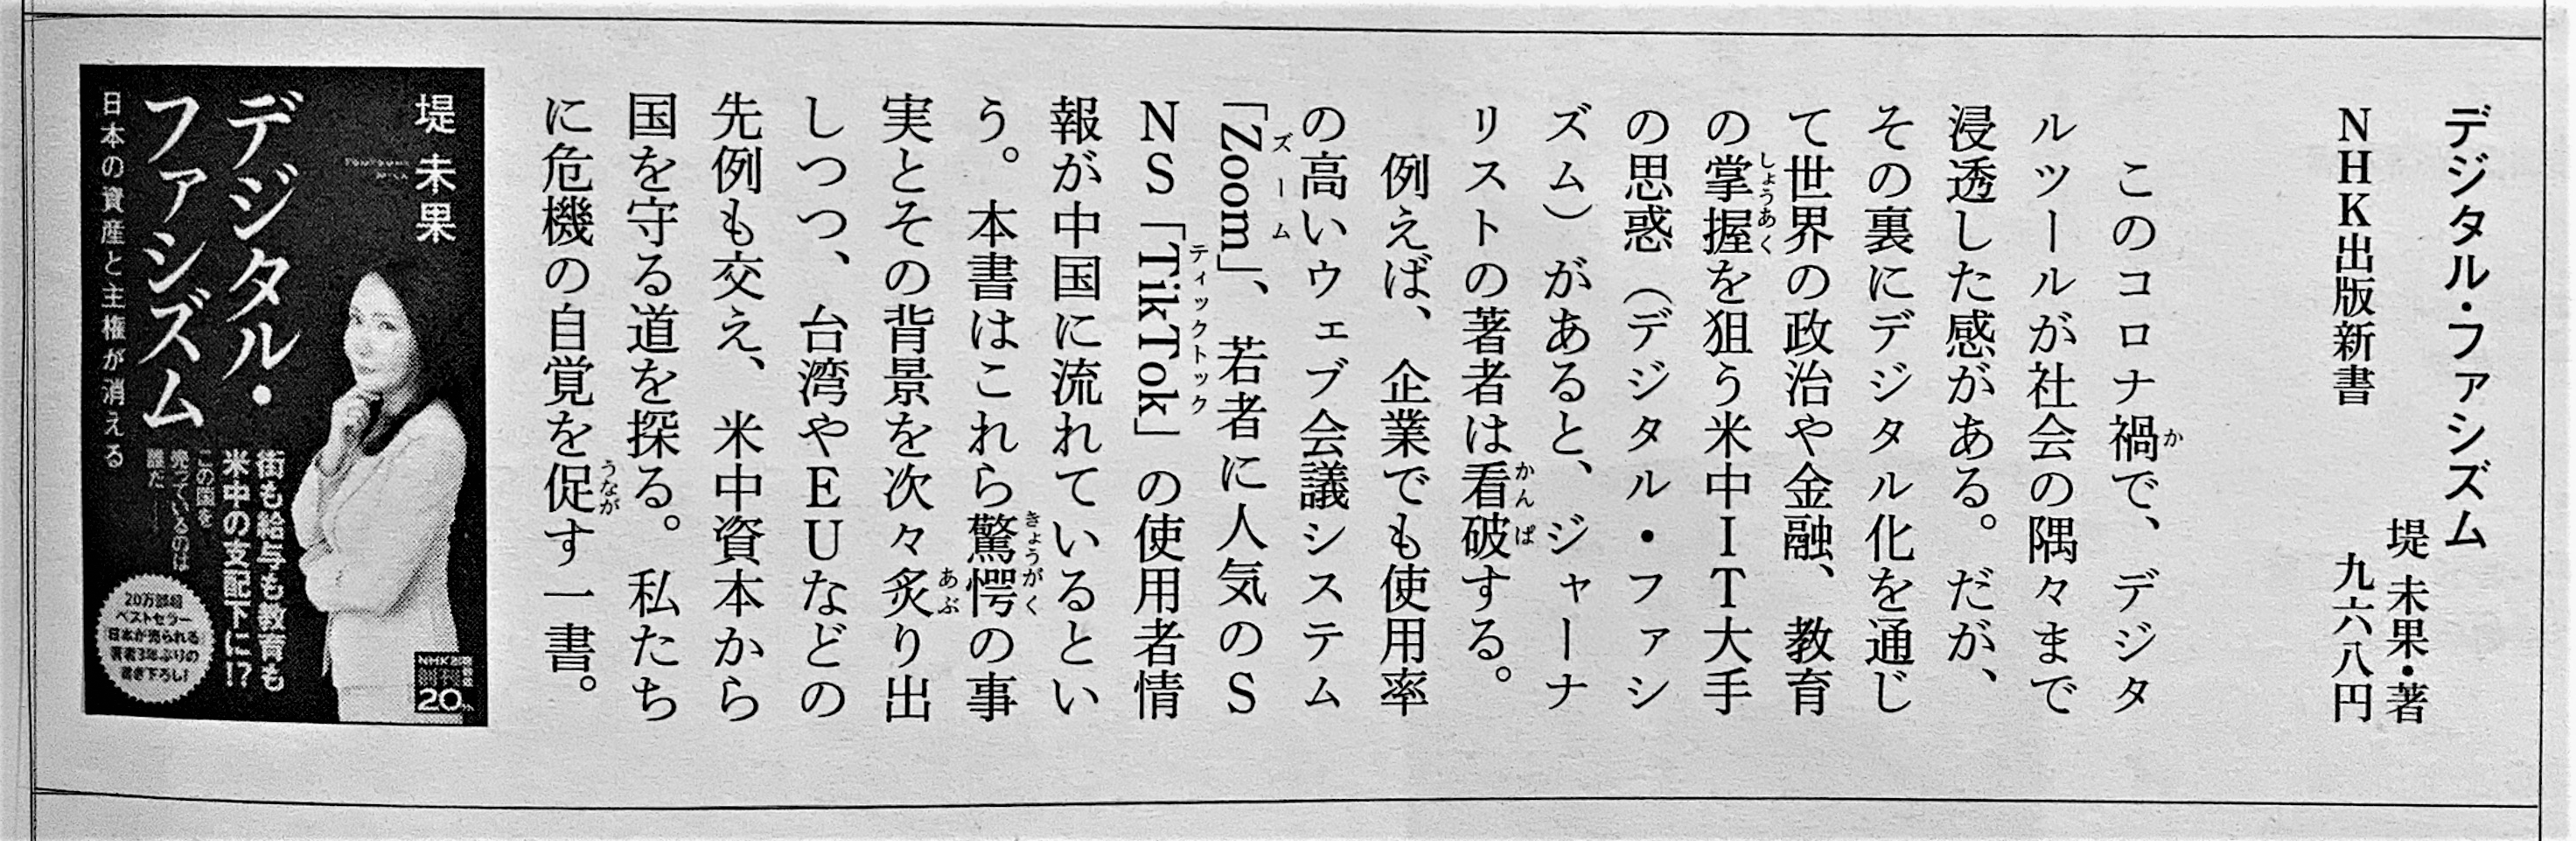 デジタル・ファシズム
堤 未果・著
NHK出版新書
九六八円
このコロナ禍で、デジタ
ルツールが社会の隅々まで
浸透した感がある。だが、
その裏にデジタル化を通じ
て世界の政治や金融、教育
の掌握を狙う米中IT大手
の思惑（デジタル・ファシ
ズム）があると、ジャーナ
リストの著者は看破する。
例えば、企業でも使用率
の高いウェブ会議システム
「Zoom」、若者に人気のS
NS「TikTok」の使用者情
報が中国に流れているとい
う。本書はこれら驚愕の事
実とその背景を次々炙り出
しつつ、台湾やEUなどの
先例も交え、米中資本から
国を守る道を探る。私たち
に危機の自覚を促す一書。
か
しょうあく
かんぱ
ズーム
ティックトック
きょうがく
あぶ
うなが
堤 未果
デジタル・
ファシズム
日本の資産と主権が消える
街も給与も教育も
米中の支配下に!?
この国を
売っているのは
誰だ――
20万部超
ベストセラー
日本が売られる
著者3年ぶりの
書き下ろし!
創刊
20